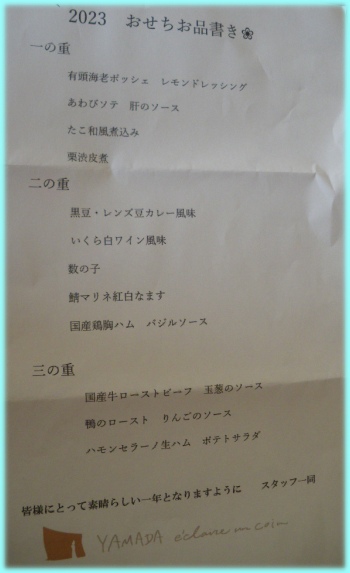 2023 おせちお品書き❀
一の重
有頭海老ポッシェ レモンドレッシング
あわびソテ 肝のソース
たこ和風煮込み
栗渋皮煮
二の重
黒豆・レンズ豆カレー風味
いくら白ワイン風味
数の子
鯖マリネ紅白なます
国産鶏胸ハム バジルソース
三の重
国産牛ローストビーフ 玉葱のソース
鴨のロースト りんごのソース
ハモンセラーノ生ハム ポテトサラダ
皆様にとって素晴らしい一年となりますように スタッフ一同
YAMADA éclaire un coin